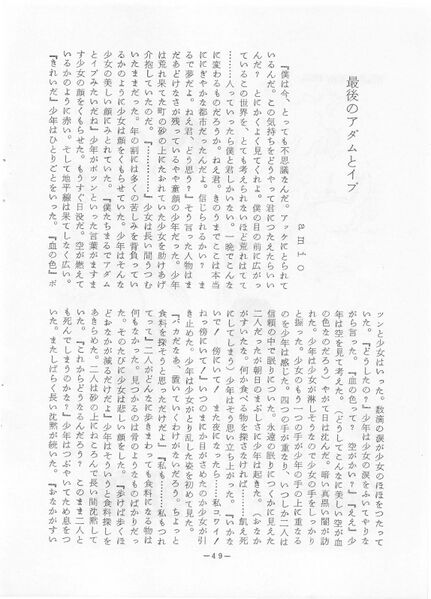 最後のアダムとイブ
amio
『僕は今、とっても不思議なんだ。アッケにとられて
いるんだ。この気持ちをどうやって君につたえたらいい
んだ？　とにかくよく見てくれよ。僕の目の前に広がっ
ているこの世界を、とても考えられないほど荒れはてて
………人っていったら僕と君しかいない。一晩でこんな
に変わるものだろうか。ねえ君。きのうまでここは本当
ににぎやかな都市だったんだよ。信じられるかい？　ま
るで夢だよ。ねえ君、どう思う？』そう言った人物はま
だあどけなさが残っているやや童顔の少年だった。少年
は荒れ果てた町の砂の上にたおれていた少女を助けあげ
介抱していたのだ。『………………』少女は長い間うつむ
いたままだった。年の割には多くの苦しみを背負ってい
るかのように少女は顔をくもらせていた。少年はそんな
少女の美しい顔にみとれていた。『僕たちまるでアダム
とイブみたいだね』少年がポツンといった言葉がますま
す少女の顔をくもらせた。もうすぐ日没だ。空が燃えて
いるかのように赤い。そして地平線は果てしなく広い。
『きれいだ』少年はひとりごとをいった。『血の色』ポ
ツンと少女はいった。数滴の涙が少女のほほをつたって
いた。『どうしたの？』少年は少女の涙をふいてやりな
がら言った。『血の色って？　空がかい？』『ええ』少
年は空を見て考えた。（どうしてこんなに美しい空が血
の色なのだろう）やがて日は沈んだ。暗い真黒い闇が訪
れた。少年は少女が淋しそうなので少女の手をしっかり
と握った。少女のもう一つの手が少年の手の上に重なる
のを少年は感じた。四つの手が重なり、いつしか二人は
信頼の中で眠りについた。永遠の眠りにつくかに見えた
二人だったが朝日のまぶしさに少年は起きた。（おなか
がすいたな。何か食べる物を探さなければ……飢え死
にしてしまう）少年はそう思い立ち上がった。『いかな
いで！傍にいて！　また夜になったら……私コワイ！
ねっ傍にいて！』いつのまにか目がさめたのか少女が引
き止めた。少年は少女がとり乱した姿を初めて見た。
『バカだなあ、置いていくわけがないだろう。ちょっと
食料を探そうと思っただけだよ』『私も……私もつれ
てって』二人がどんなに歩きまわっても食料になる物は
何もなかった。見つかるのは骨のようなものばかりだっ
た。そのたびに少女は悲しい顔をした。『歩けば歩くほ
どおなかが減るだけだよ』少年はそういうと食料探しを
あきらめた。二人は砂の上にねころんで長い間沈黙して
いた。『これからどうなるんだろう？　このまま二人と
も死んでしまうのかな？』少年はつぶやいてため息をつ
いた。またしばらく長い沈黙が続いた。『おなかがすい
―49―